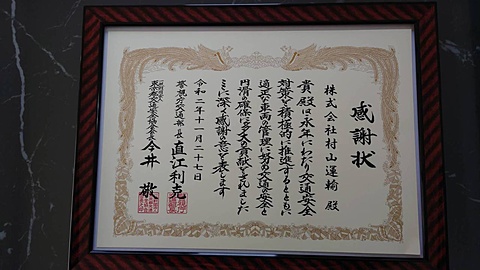 感謝状
株式会社村山運輸 殿
貴殿は永年にわたり交通安全
対策を積極的に推進するとともに
適正な車両の管理に努め交通安全と
円滑の確保に多大な貢献をされました
ここに深く感謝の意を表します
令和二年十一月二十七日
警視庁交通部長 直江利克
今井 敬